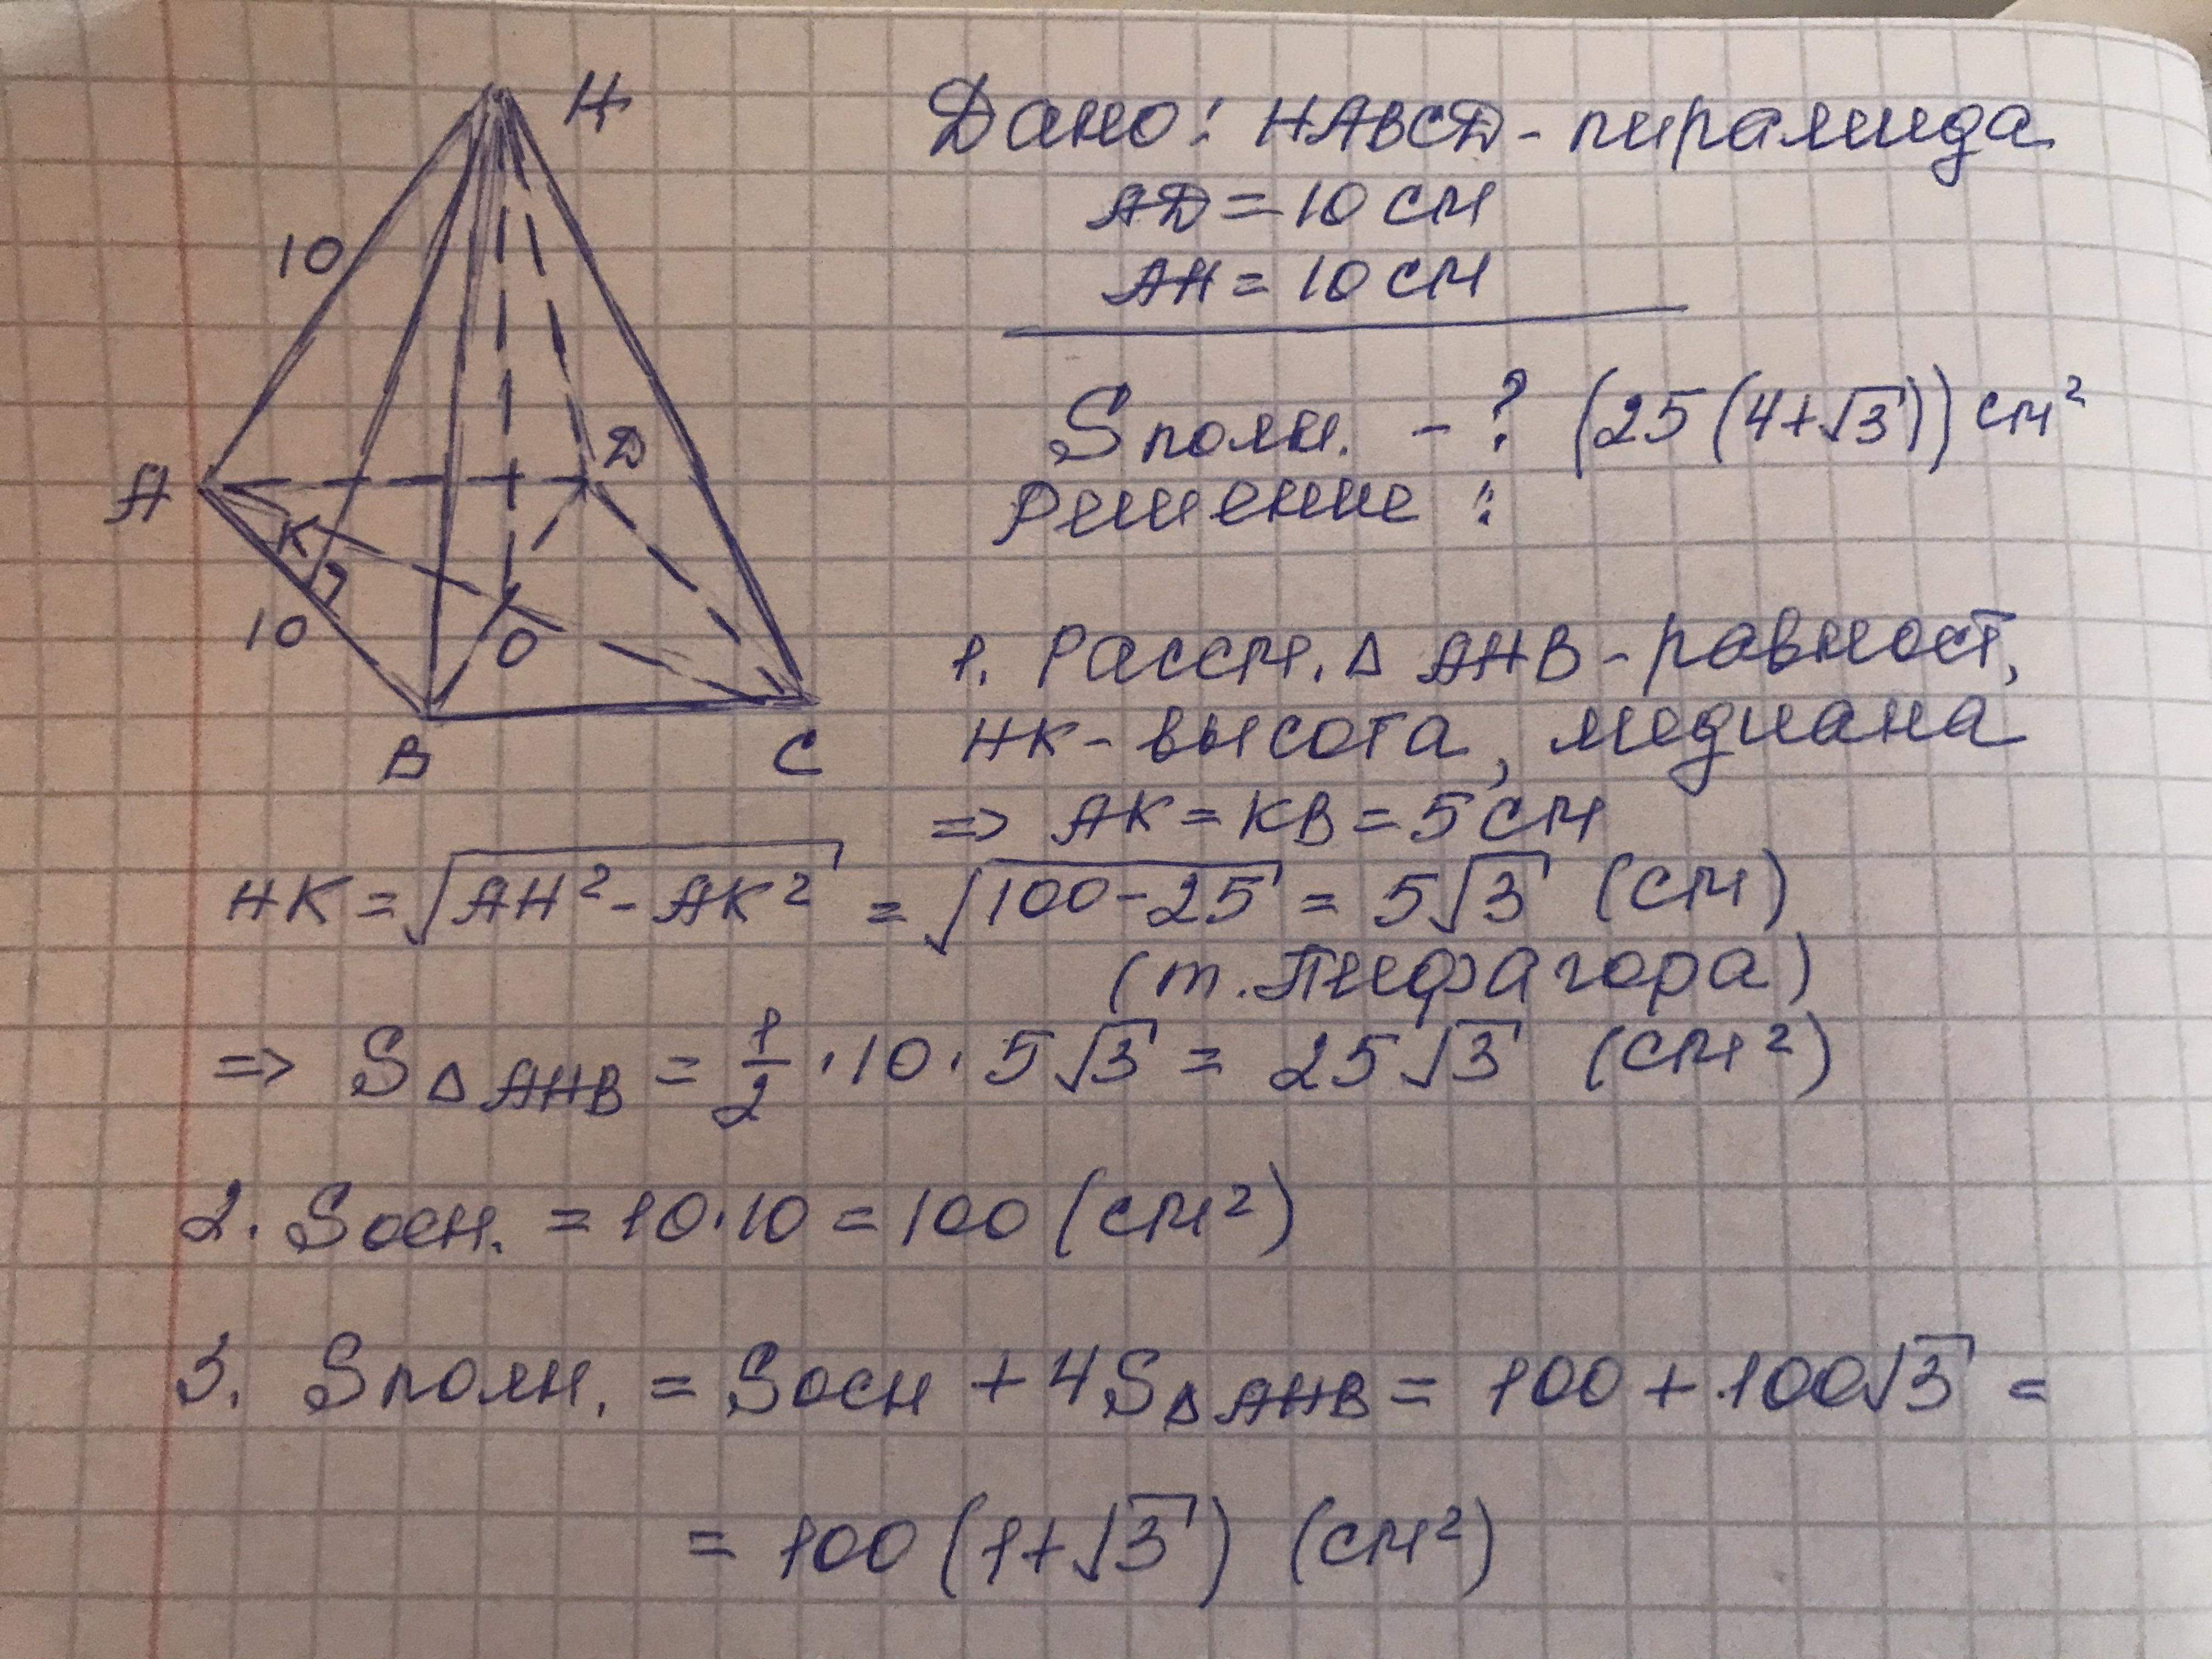 H
Дано: HABCD - пирамида
AD = 10 см
10
AH = 10 см
Sполн. - ? (25(4+√3)) см²
A
D
Решение:
K
10
O
1. Рассм. △ AHB - равност,
B
C
HK - высота, медиана
=> AK = KB = 5 см
HK = √(AH² - AK²) = √(100-25) = 5√3 (см)
(т. Пифагора)
=> S△AHB = 1/2 · 10 · 5√3 = 25√3 (см²)
2. Sосн. = 10·10 = 100 (см²)
3. Sполн. = Sосн + 4S△AHB = 100 + 100√3 =
= 100 (1+√3) (см²)